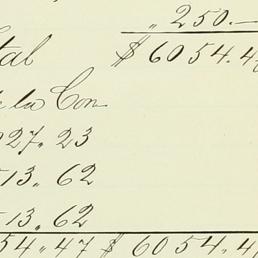 „ 250.—
tal $ 6054.4
la Con
27. 23
13. 62
13. 62
54. 47 $ 6054. 4